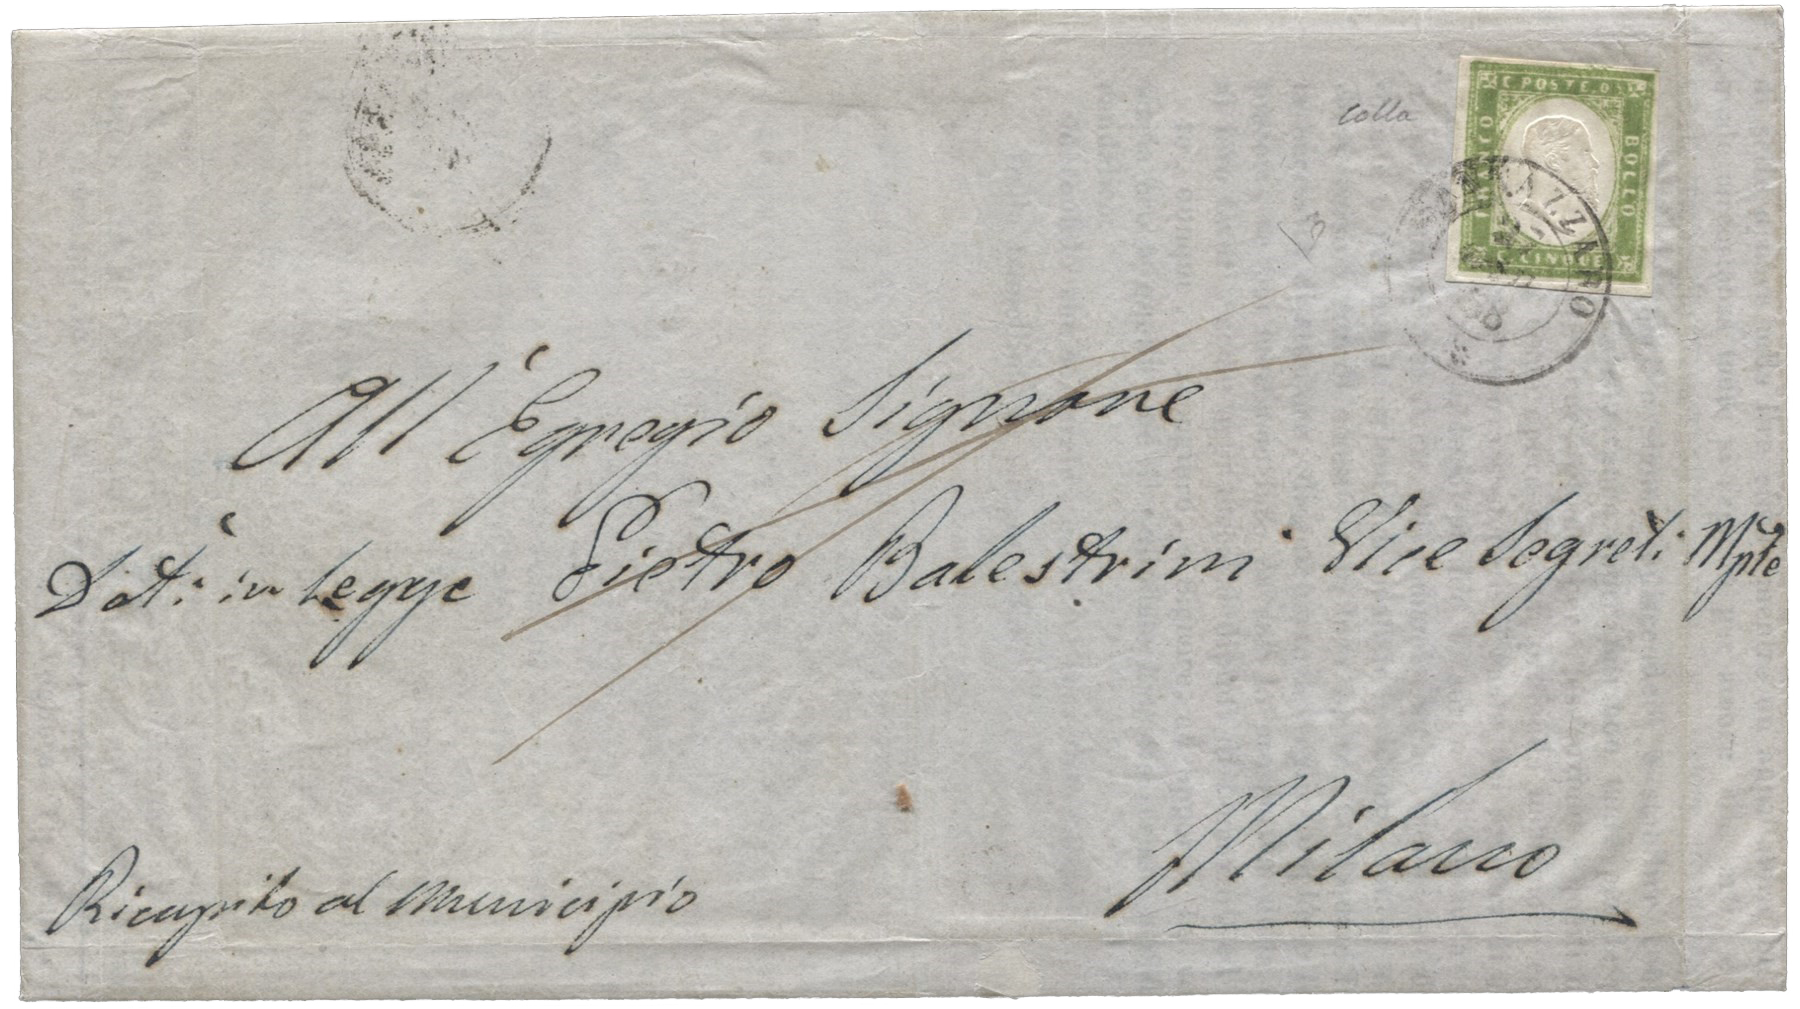 C. POSTE. 05
FRANCO
BOLLO
C. CINQUE
Colla
60
All'Egregio Signore
Dott. in Legge Pietro Balestrini Vice Segret: Mple
Milano
Ricapito al Municipio